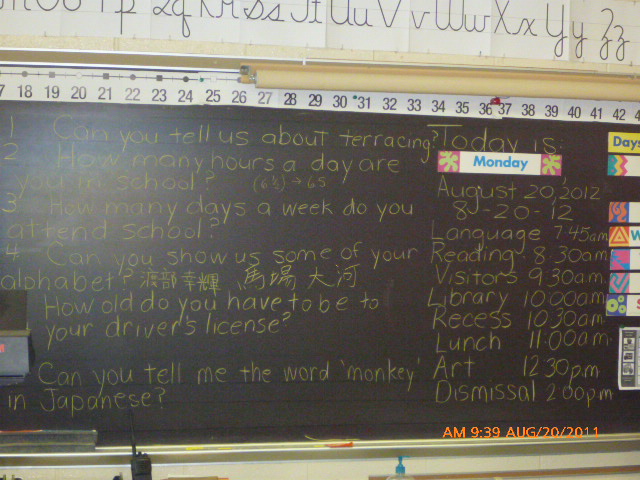 Pp Qq Rr Ss Tt Uu Vv Ww Xx Yy Zz
17 18 19 20 21 22 23 24 25 26 27 28 29 30 31 32 33 34 35 36 37 38 39 40 41 42
1 Can you tell us about terracing?
2 How many hours a day are
you in school? (6½) → 6.5
3 How many days a week do you
attend school?
4 Can you show us some of your
alphabet? 渡部幸輝、馬場大河
How old do you have to be to
your driver's license?
Can you tell me the word 'monkey'
in Japanese?
Today is:
Monday
August 20, 2012
8-20-12
Language 7:45am
Reading 8:30am
Visitors 9:30am
Library 10:00am
Recess 10:30am
Lunch 11:00am
Art 12:30pm
Dismissal 2:00pm
Days
AM 9:39 AUG/20/2011